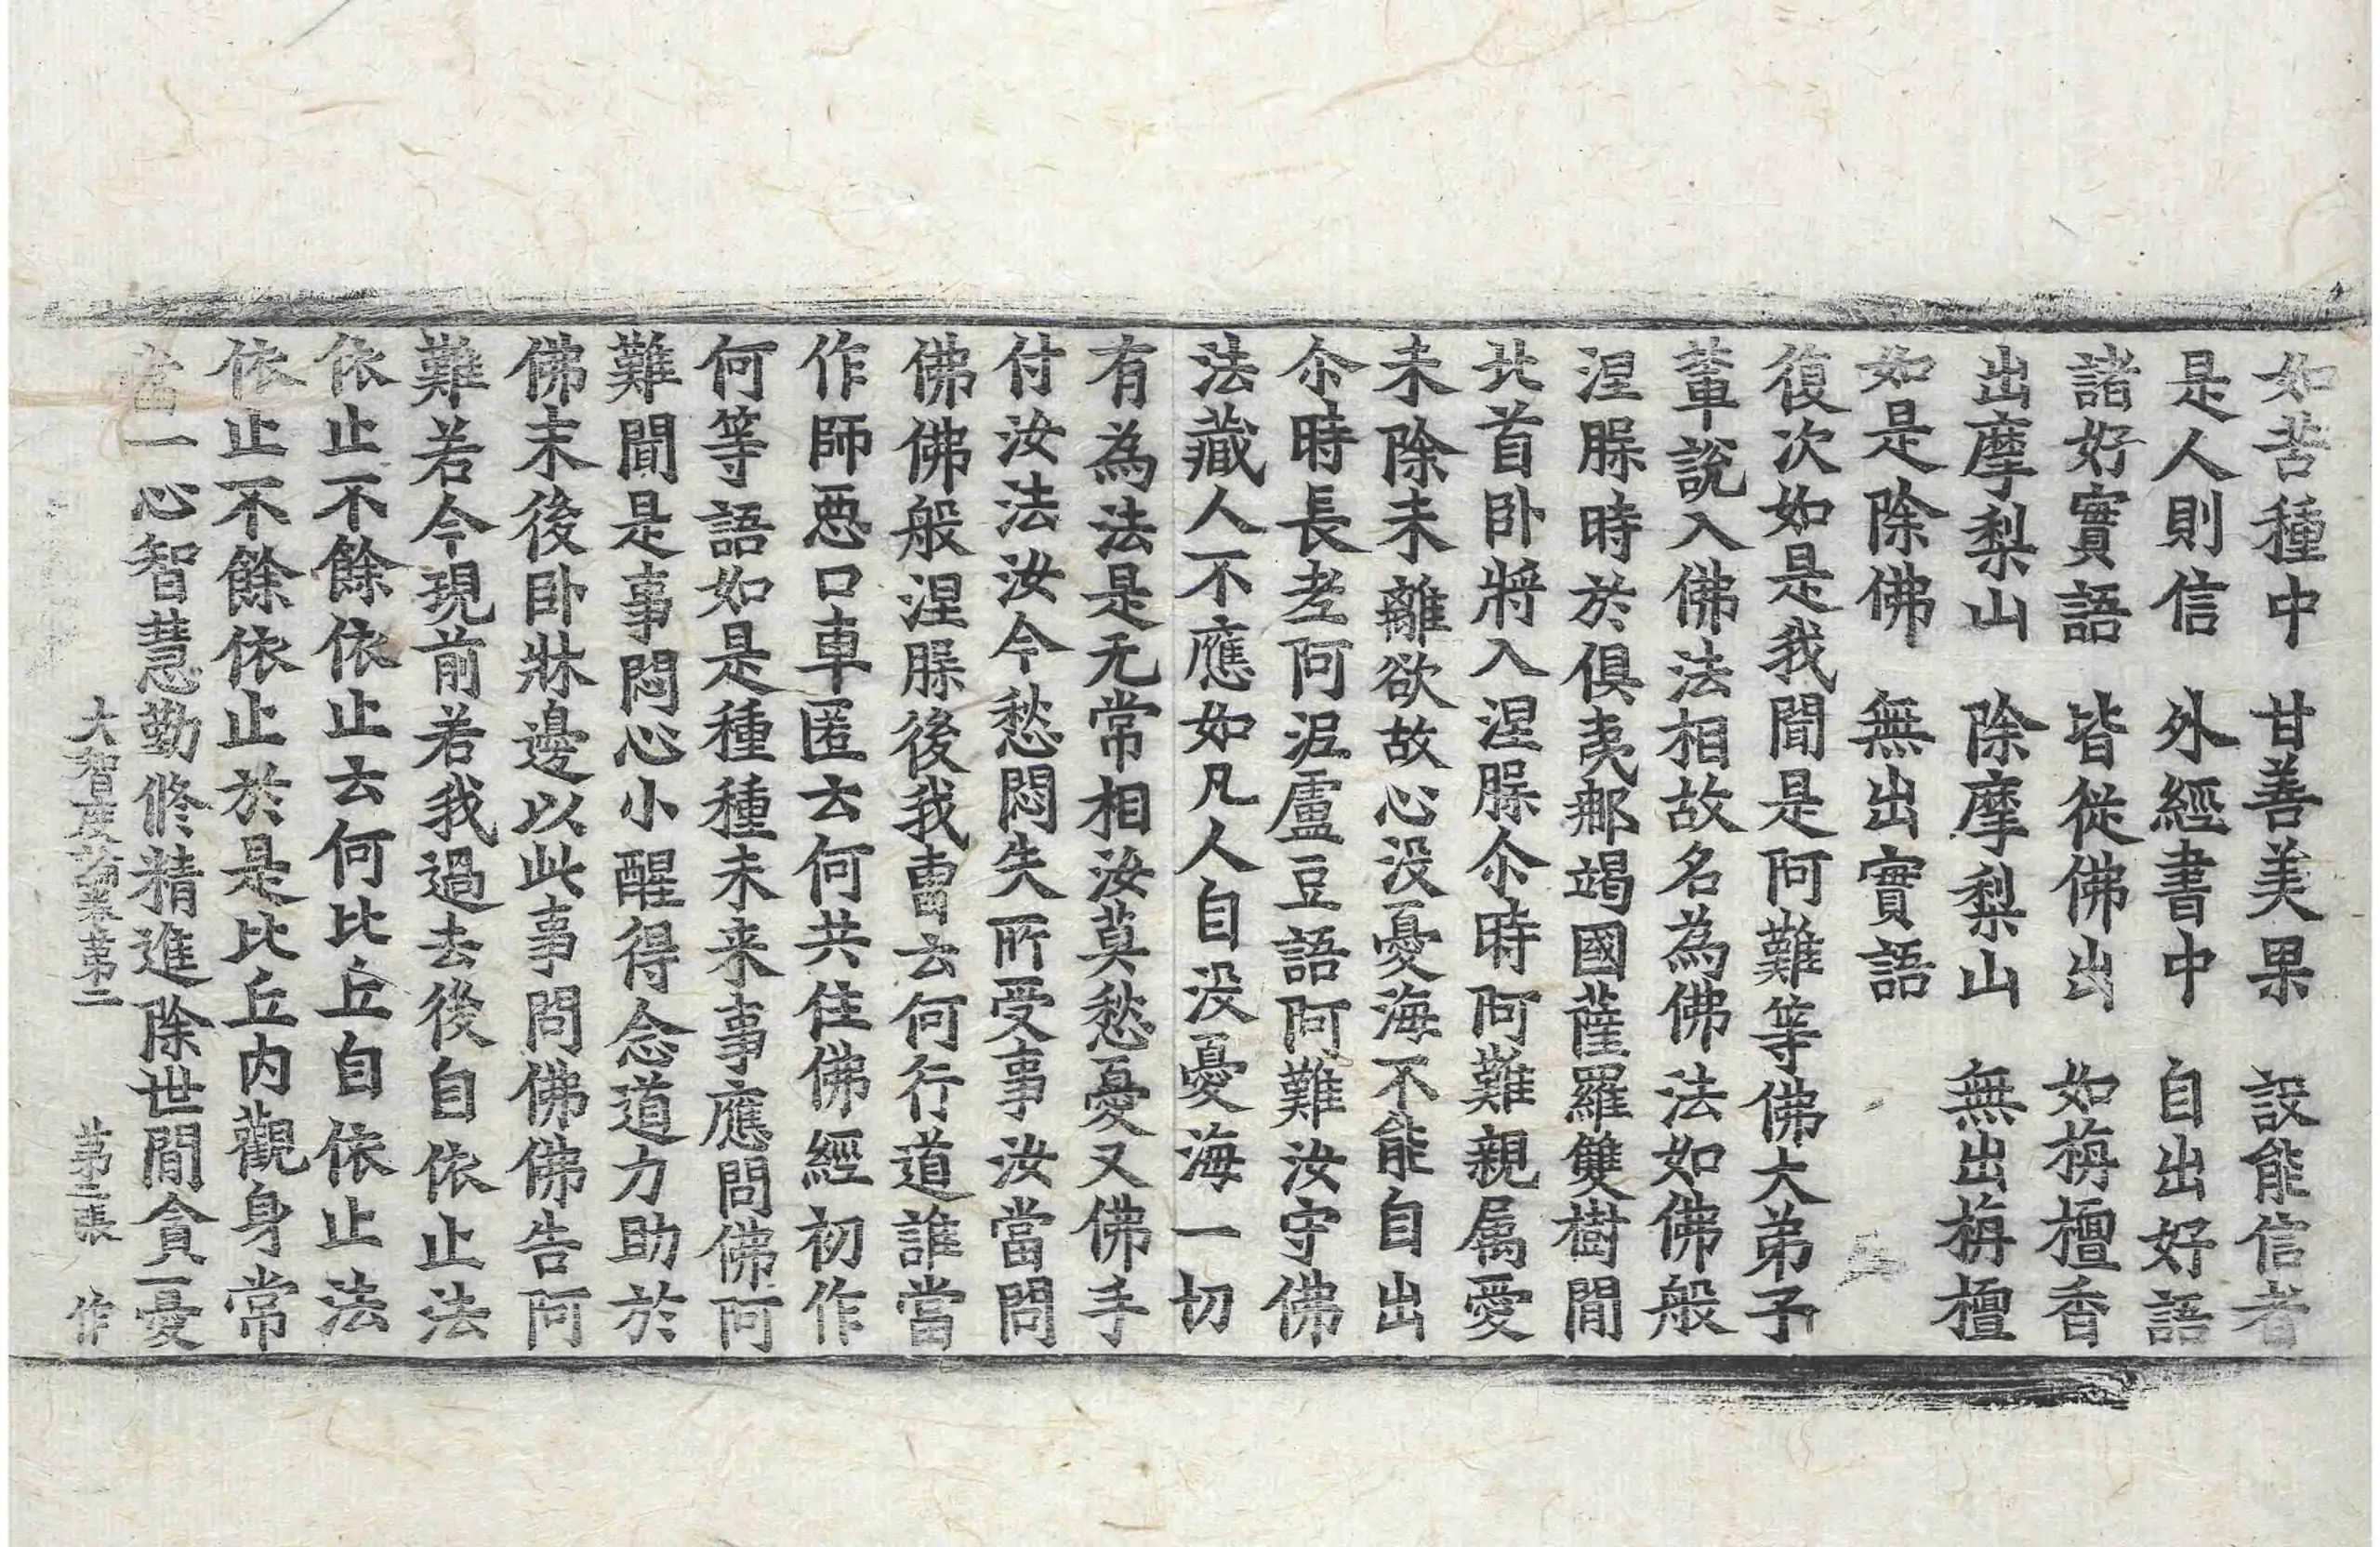 如苦種中　甘善美果　設能信者
是人則信　外經書中　自出好語
諸好實語　皆從佛出　如栴檀香
出摩梨山　除摩梨山　無出栴檀
如是除佛　無出實語
復次如是我聞是阿難等佛大弟子
輩說入佛法相故名為佛法如佛般
涅槃時於俱夷那竭國薩羅雙樹間
北首卧將入涅槃尒時阿難親属愛
未除未離欲故心没憂海不能自出
尒時長老阿泥盧豆語阿難汝守佛
法藏人不應如凡人自没憂海一切
有為法是无常相汝莫愁憂又佛手
付汝法汝今愁悶失所受事汝當問
佛佛般涅槃後我曹云何行道誰當
作師惡口車匿云何共住佛經初作
何等語如是種種未来事應問佛阿
難聞是事悶心小醒得念道力助於
佛末後卧牀邊以此事問佛佛告阿
難若今現前若我過去後自依止法
依止不餘依止云何比丘自依止法
依止不餘依止於是比丘内觀身常
當一心智慧勤修精進除世間貪憂
大智度論卷第二　第三張　作